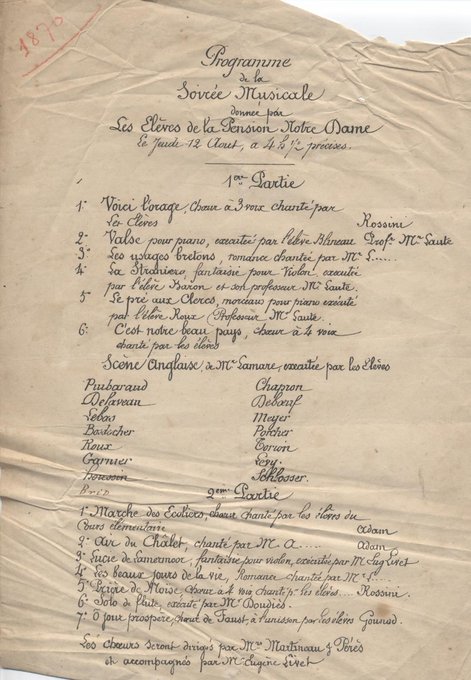 1870
Programme
de la
Soirée Musicale
donnée par
Les Elèves de la Pension Notre Dame
Le Jeudi 12 Aout, a 4 h ½ précises.
1ère Partie
1° Voici l'orage, chœur à 3 voix chanté par
Les Elèves Rossini
2° Valse pour piano, executée par l'élève Blineau Profr Mr Lauté
3° Les usages bretons, romance chantée par M. L.....
4° La Straniera fantaisie pour Violon, executée
par l'élève Baron et son professeur Mr Lauté.
5° Le pré aux Clercs, morceau pour piano exécuté
par l'élève Roux (Professeur Mr Lauté.
6° C'est notre beau pays, chœur à 4 voix
chanté par les élèves
Scène Anglaise de Mr Lamare, executée par les Elèves
Puibaraud Chapron
Delaveau Debœuf
Lebas Meyer
Bosdocher Porcher
Roux
Garnier Levy
Poussin Schlosser.
2ème Partie
1° Marche des Ecoliers, chœur chanté par les élèves du
Cours élémentaire Adam
2° Air du Châlet, chanté par M. A..... Adam
3° Lucie de Lamermoor, fantaisie pour violon, exécutée par M. Eug Livet
4° Les beaux jours de la vie, Romance chantée par M. L....
5° Prière de Moïse Chœur a 4 voix chanté pr les élèves.... Rossini.
6° Solo de flute, exécuté par M. Doudiès.
7° O jour prospère, chœur de Faust, à l'unisson par les élèves Gounod.
Les chœurs seront dirigés par Mrs Martineau & Pérès
et accompagnés par Mr Eugène Livet